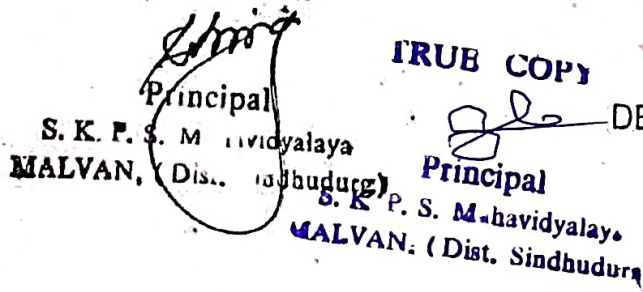 Principal
S. K. P. S. M vidyalaya
MALVAN, (Dis. hudurg)
TRUE COPY
DE
Principal
S. K P. S. Mahavidyalay
MALVAN. (Dist. Sindhudurg